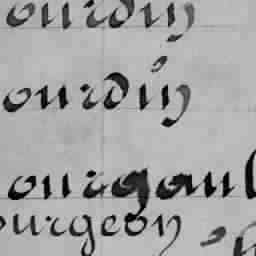 ourdin
ourdin
ourgaul
ourgeon